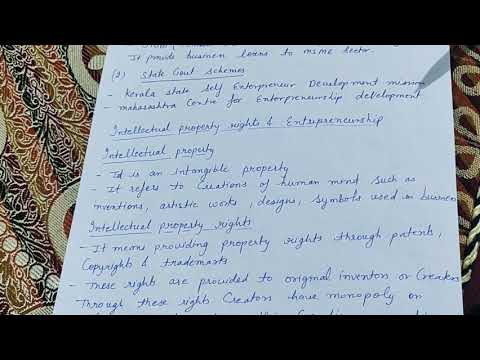 It provide business loans to msme sector.
(2) State Govt schemes
- Kerala state self Enterpreneur Development mission
- maharashtra Centre for Enterpreneurship development
Intellectual property rights & Entrepreneurship
Intellectual property
- Id is an intangible property
- It refers to Creations of human mind such as
inventions, artistic works, designs, symbols used in business
Intellectual property rights
- It means providing property rights through patents,
Copyrights & trademarks
- These rights are provided to original inventors or Creators
Through these rights Creators have monopoly on